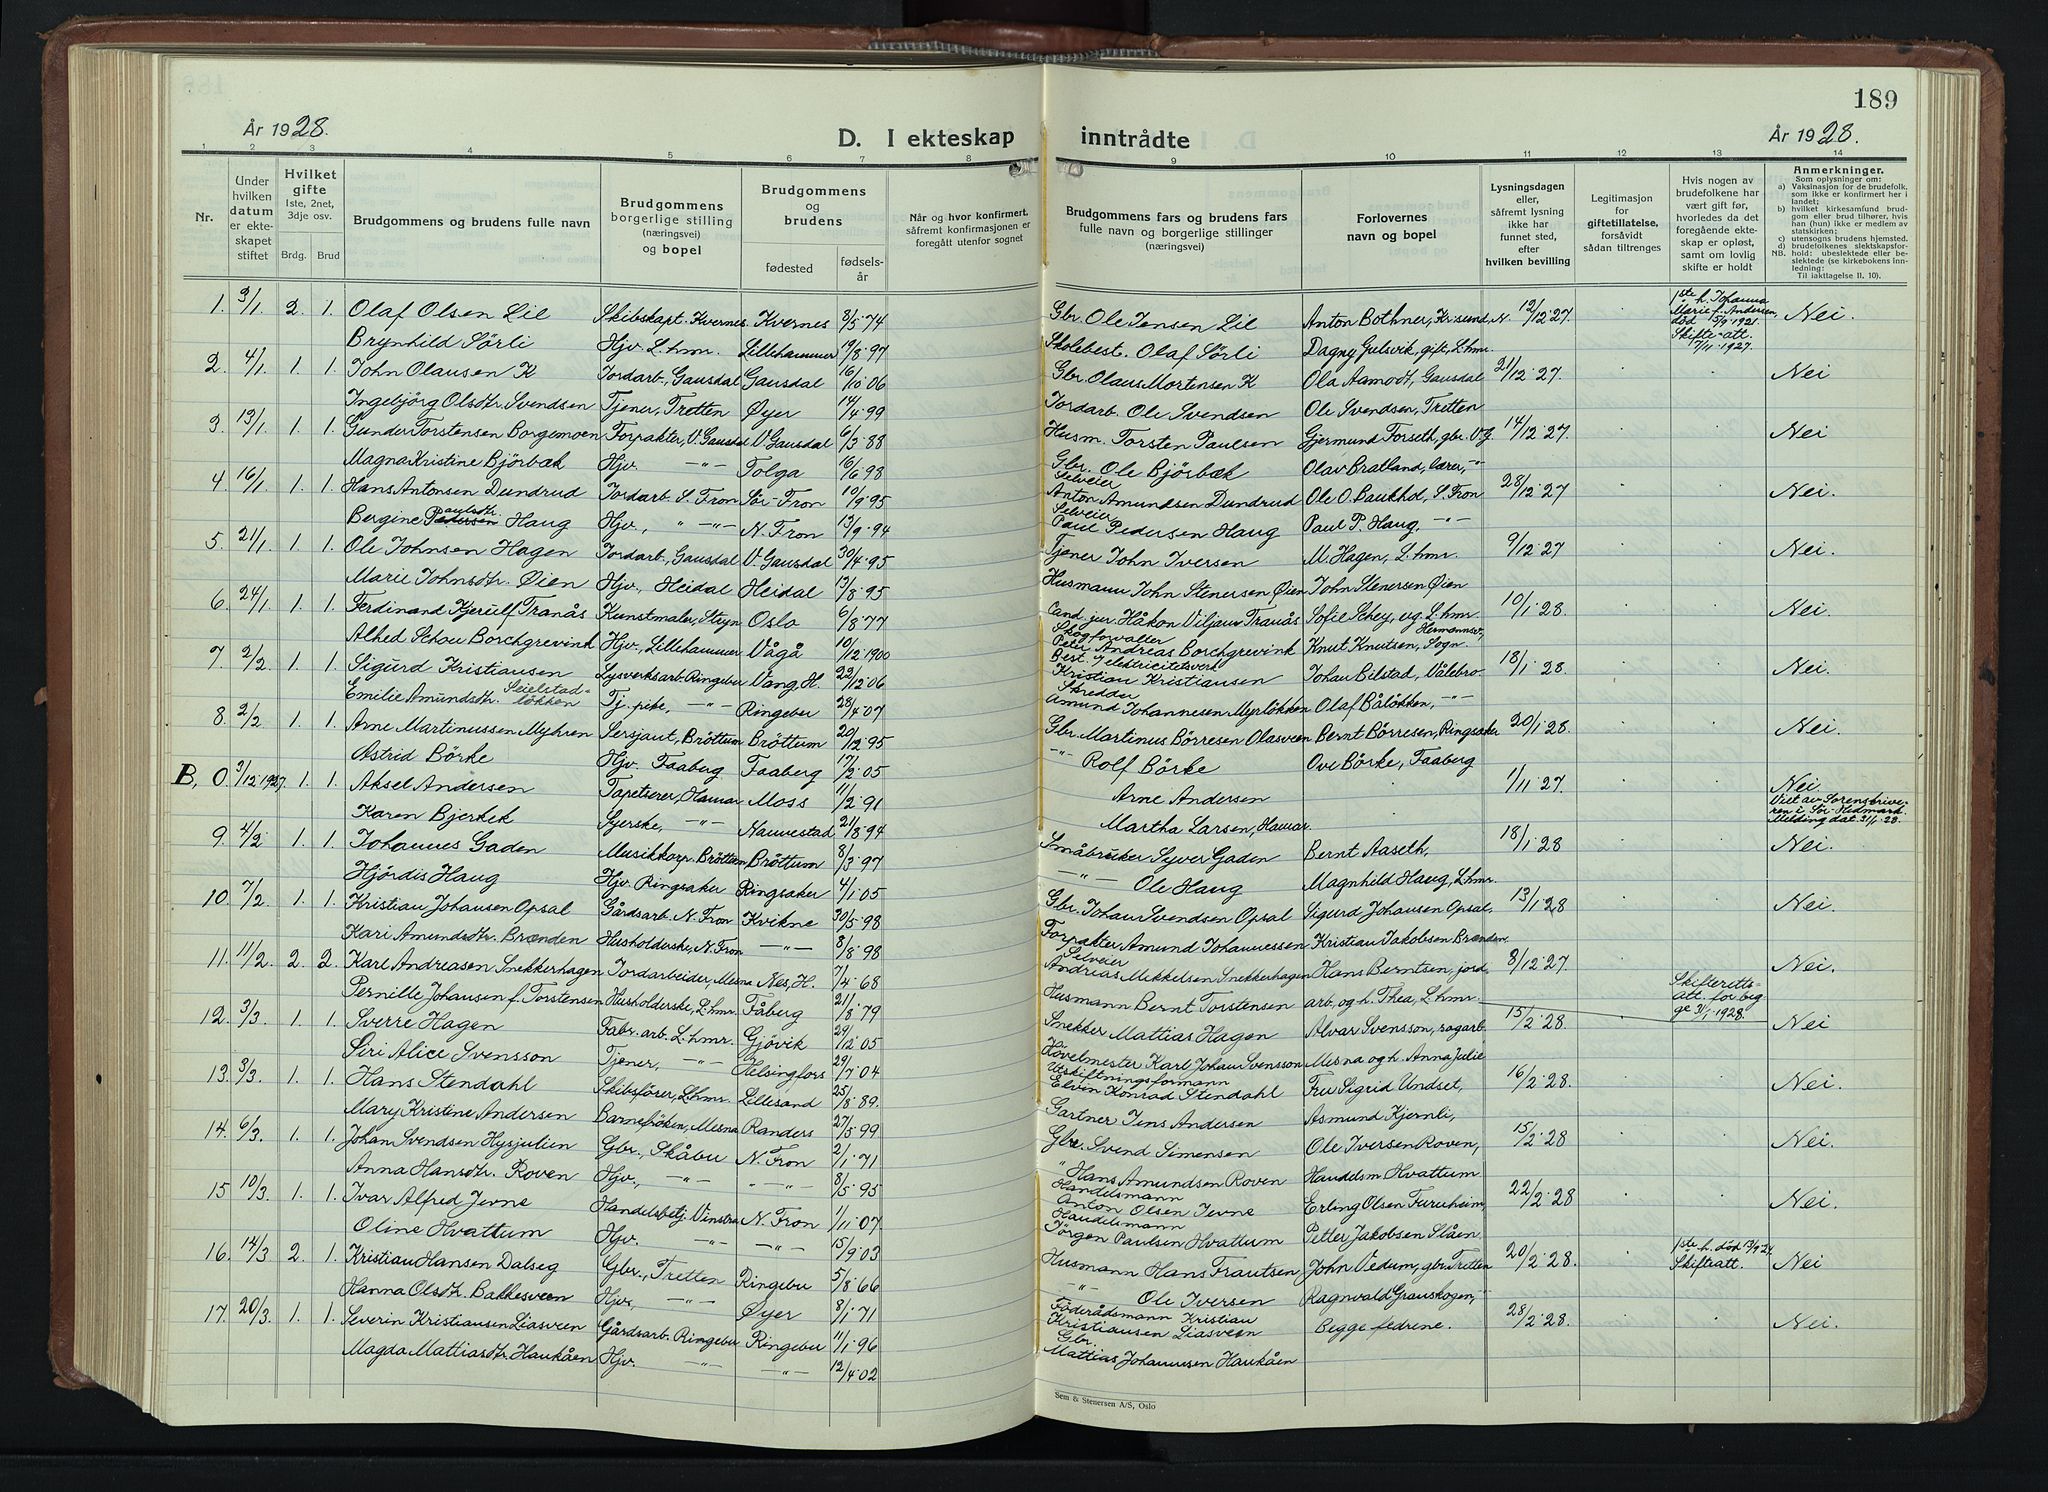 189
År 1928.
D. I ekteskap inntrådte
År 1928.
1 2 3 4 5 6 7 8 9 10 11 12 13 14
Nr.
Under hvilken datum er ekteskapet stiftet
Hvilket gifte 1ste, 2net, 3dje osv.
Brdg. Brud
Brudgommens og brudens fulle navn
Brudgommens borgerlige stilling (næringsvei) og bopel
Brudgommens og brudens
fødested
fødselsår
Når og hvor konfirmert, såfremt konfirmasjonen er foregått utenfor sognet
Brudgommens fars og brudens fars fulle navn og borgerlige stillinger (næringsvei)
Forlovernes navn og bopel
Lysningsdagen eller, såfremt lysning ikke har funnet sted, efter hvilken bevilling
Legitimasjon for giftetillatelse, forsåvidt sådan tiltrenges
Hvis nogen av brudefolkene har vært gift før, hvorledes da det foregående ekteskap er opløst, samt om lovlig skifte er holdt
Anmerkninger.
Som oplysninger om:
a) Vaksinasjon for de brudefolk, som ikke er konfirmert her i landet;
b) hvilket kirkesamfund brudgom eller brud tilhører, hvis han (hun) ikke er medlem av statskirken;
c) utensogns brudens hjemsted.
d) brudefolkenes slektskapsforhold: ubeslektede eller beslektede (se kirkebokens innledning:
NB. Til iakttagelse II. 10).
1. 3/1 2. 1. Olaf Olsen Lil Skibskapt. Kvernes Kvernes 8/5 74 Gbr. Ole Jensen Lil Anton Bothner, Kr.sund N. 12/12 27. 1ste h. Johanna Marie f. Andersen, død 15/9 1921. Skifte-att. 17/11 1927. Nei.
Brynhild Sörli Hjv. L.hmr. Lillehammer 19/8 97 Skolebest. Olaf Sörli Dagny Gulsvik, gift, L.hmr.
2. 4/1 1. 1. John Olausen K Jordarb., Gausdal Gausdal 16/10 06 Gbr. Olaus Mortensen K Ola Aamodt, Gausdal 21/12 27. Nei
Ingebjörg Olsdtr. Svendsen Tjener, Tretten Øyer 14/4 99 Jordarb. Ole Svendsen Ole Svendsen, Tretten
3. 13/1 1. 1. Gunder Torstensen Borgemoen Forpakter, V. Gausdal V. Gausdal 6/3 88 Husm. Torsten Paulsen Gjermund Forseth, gbr. V.G. 14/12 27. Nei
Magna Kristine Björbæk Hjv. -"- Tolga 16/6 98 Gbr. Ole Björbæk Olav Bratland, lærer, -"
4. 16/1 1. 1. Hans Antonsen Dundrud Jordarb. S. Fron Sör-Fron 10/9 95 Selveier Anton Amundsen Dundrud Ole O. Baukhol, S. Fron 28/12 27 Nei.
Bergine Paulsdtr. Haug Hjv., " -"- N. Fron 13/9 94 Selveier Paul Pedersen Haug Paul P. Haug, -"-
5. 21/1 1. 1. Ole Johnsen Hagen Jordarb., Gausdal V. Gausdal 30/4 95 Tjener John Iversen M. Hagen, L.hmr. 9/12 27 Nei.
Marie Johnsdtr. Øien Hjv., Heidal Heidal 13/8 95 Husmann John Stenersen Øien John Stenersen Øien
6. 24/1 1. 1. Ferdinand Kjerulf Tranås Kunstmaler, Stryn Oslo 6/8 77 Cand. jur. Håkon Viljam Tranås Sofie Schey, ug. L.hmr. 10/1 28. Nei.
Alhed Schou Borchgrevink Hjv., Lillehammer Vågå 10/12 1900 Skogforvalter Peter Andreas Borchgrevink Knut Knutsen, Hermannset, Sogn
7. 2/2 1. 1. Sigurd Kristiansen Lysverksarb. Ringebu Vang H. 22/12 06 Best. v/elektricitetsverk Kristian Kristiansen Johan Bilstad, Vålebro 18/1 28. Nei.
Emilie Amundsdtr. Seielstadlökken Tj.pike, -"- Ringebu 28/4 07 Skredder Amund Johannesen Myrlökken Olaf Bålökken, -"-
8. 2/2 1. 1. Arne Martinussen Myhren Sersjant, Bröttum Bröttum 20/12 95 Gbr. Martinus Börresen Olasveen Bernt Börresen, Ringsaker 20/1 28. Nei.
Astrid Börke Hjv. Faaberg Faaberg 17/2 05 -"- Rolf Börke Ove Börke, Faaberg
B, 0. 3/12 1927. 1. 1. Aksel Andersen Tapetserer, Hamar Moss 11/2 91 Arne Andersen 1/11 27. Nei. Viet av Sorenskriveren i Sör-Hedmark. Melding dat. 21/1 28.
Karen Bjerkek Syerske, -"- Nannestad 21/8 94 Martha Larsen, Hamar
9. 4/2 1. 1. Johannes Gaden Musikkorp. Bröttum Bröttum 8/3 97 Småbruker Syver Gaden Bernt Aaseth, 18/1 28 Nei.
Hjördis Haug Hjv. Ringsaker Ringsaker 4/1 05 -"- Ole Haug Magnhild Haug, L.hmr.
10. 7/2 1. 1. Kristian Johansen Opsal Gårdsarb. N. Fron Kvikne 30/5 98 Gbr. Johan Svendsen Opsal Sigurd Johansen Opsal. 13/1 28 Nei.
Kari Amundsdtr. Brænden Husholderske, N. Fron -"- 8/8 98 Forpakter Amund Johannessen Kristian Jakobsen Brænden
11. 11/2 2. 2. Karl Andreasen Snekkerhagen Jordarbeider, Mesna Nes, H. 7/4 68 Selveier Andreas Mikkelsen Snekkerhagen Hans Berntsen, jord. 8/12 27. Skifteretts-att. for begge 3/1 1928. Nei.
Pernille Johansen f. Torstensen Husholderske, L.hmr. Fåberg 21/8 79 Husmann Bernt Torstensen arb. og h. Thea, L.hmr.
12. 3/3 1. 1. Sverre Hagen Fabr.arb. L.hmr. Gjövik 29/12 05 Snekker Mattias Hagen Alvar Svensson, sagarb. 15/2 28. Nei
Siri Alice Svensson Tjener, -"- Helsingfors 29/7 04 Hövelmester Karl Johan Svensson Mesna og h. Anna Julie
13. 3/3 1. 1. Hans Stendahl Skibsförer, L.hmr. Lillesand 25/8 89. Utskiftningsformann Elvin Konrad Stendahl Fru Sigrid Undset, 16/2 28. Nei.
Mary Kristine Andersen Barnefröken, Mesna Randers 27/5 99 Gartner Jens Andersen Asmund Kjernli,
14. 6/3 1. 1. Johan Svendsen Hysjulien Gbr., Skåbu N. Fron 2/1 71 Gbr. Svend Simensen Ole Iversen Roven, 15/2 28 Nei.
Anna Hansdtr. Roven Hjv., -"- " -"- 8/5 95 " Hans Amundsen Roven Handelsm Hvattum
15 10/3 1. 1. Ivar Alfred Jevne Handelsbetj. Vinstra N. Fron 1/11 07 Handelsmann Anton Olsen Jevne Erling Olsen Furuheim, 22/2 28 Nei.
Oline Hvattum Hjv. -"- -"- 15/9 03 Handelsmann Jörgen Paulsen Hvattum Petter Jakobsen Slåen
16. 14/3 2. 1. Kristian Hansen Dalseg Gbr., Tretten Ringebu 5/8 66 Husmann Hans Frantsen John Vedum, gbr. Tretten 20/2 28. 1ste h. död 13/9 24. Skifteatt. Nei
Hanna Olsdtr. Bakkesveen Hjv., -"- Øyer 8/1 71 -"- Ole Iversen Ragnvald Granskogen, -"
17. 20/3 1. 1. Severin Kristiansen Liasveen Gårdsarb. Ringebu Ringebu 11/1 96 Föderådsmann Kristian Kristiansen Liasveen Begge fedrene. 28/2 28. Nei.
Magda Mattiasdtr. Haukåen Hjv. -"- -"- 12/4 02 Gbr. Mattias Johannsen Haukåen
Sem & Stenersen A/S, Oslo